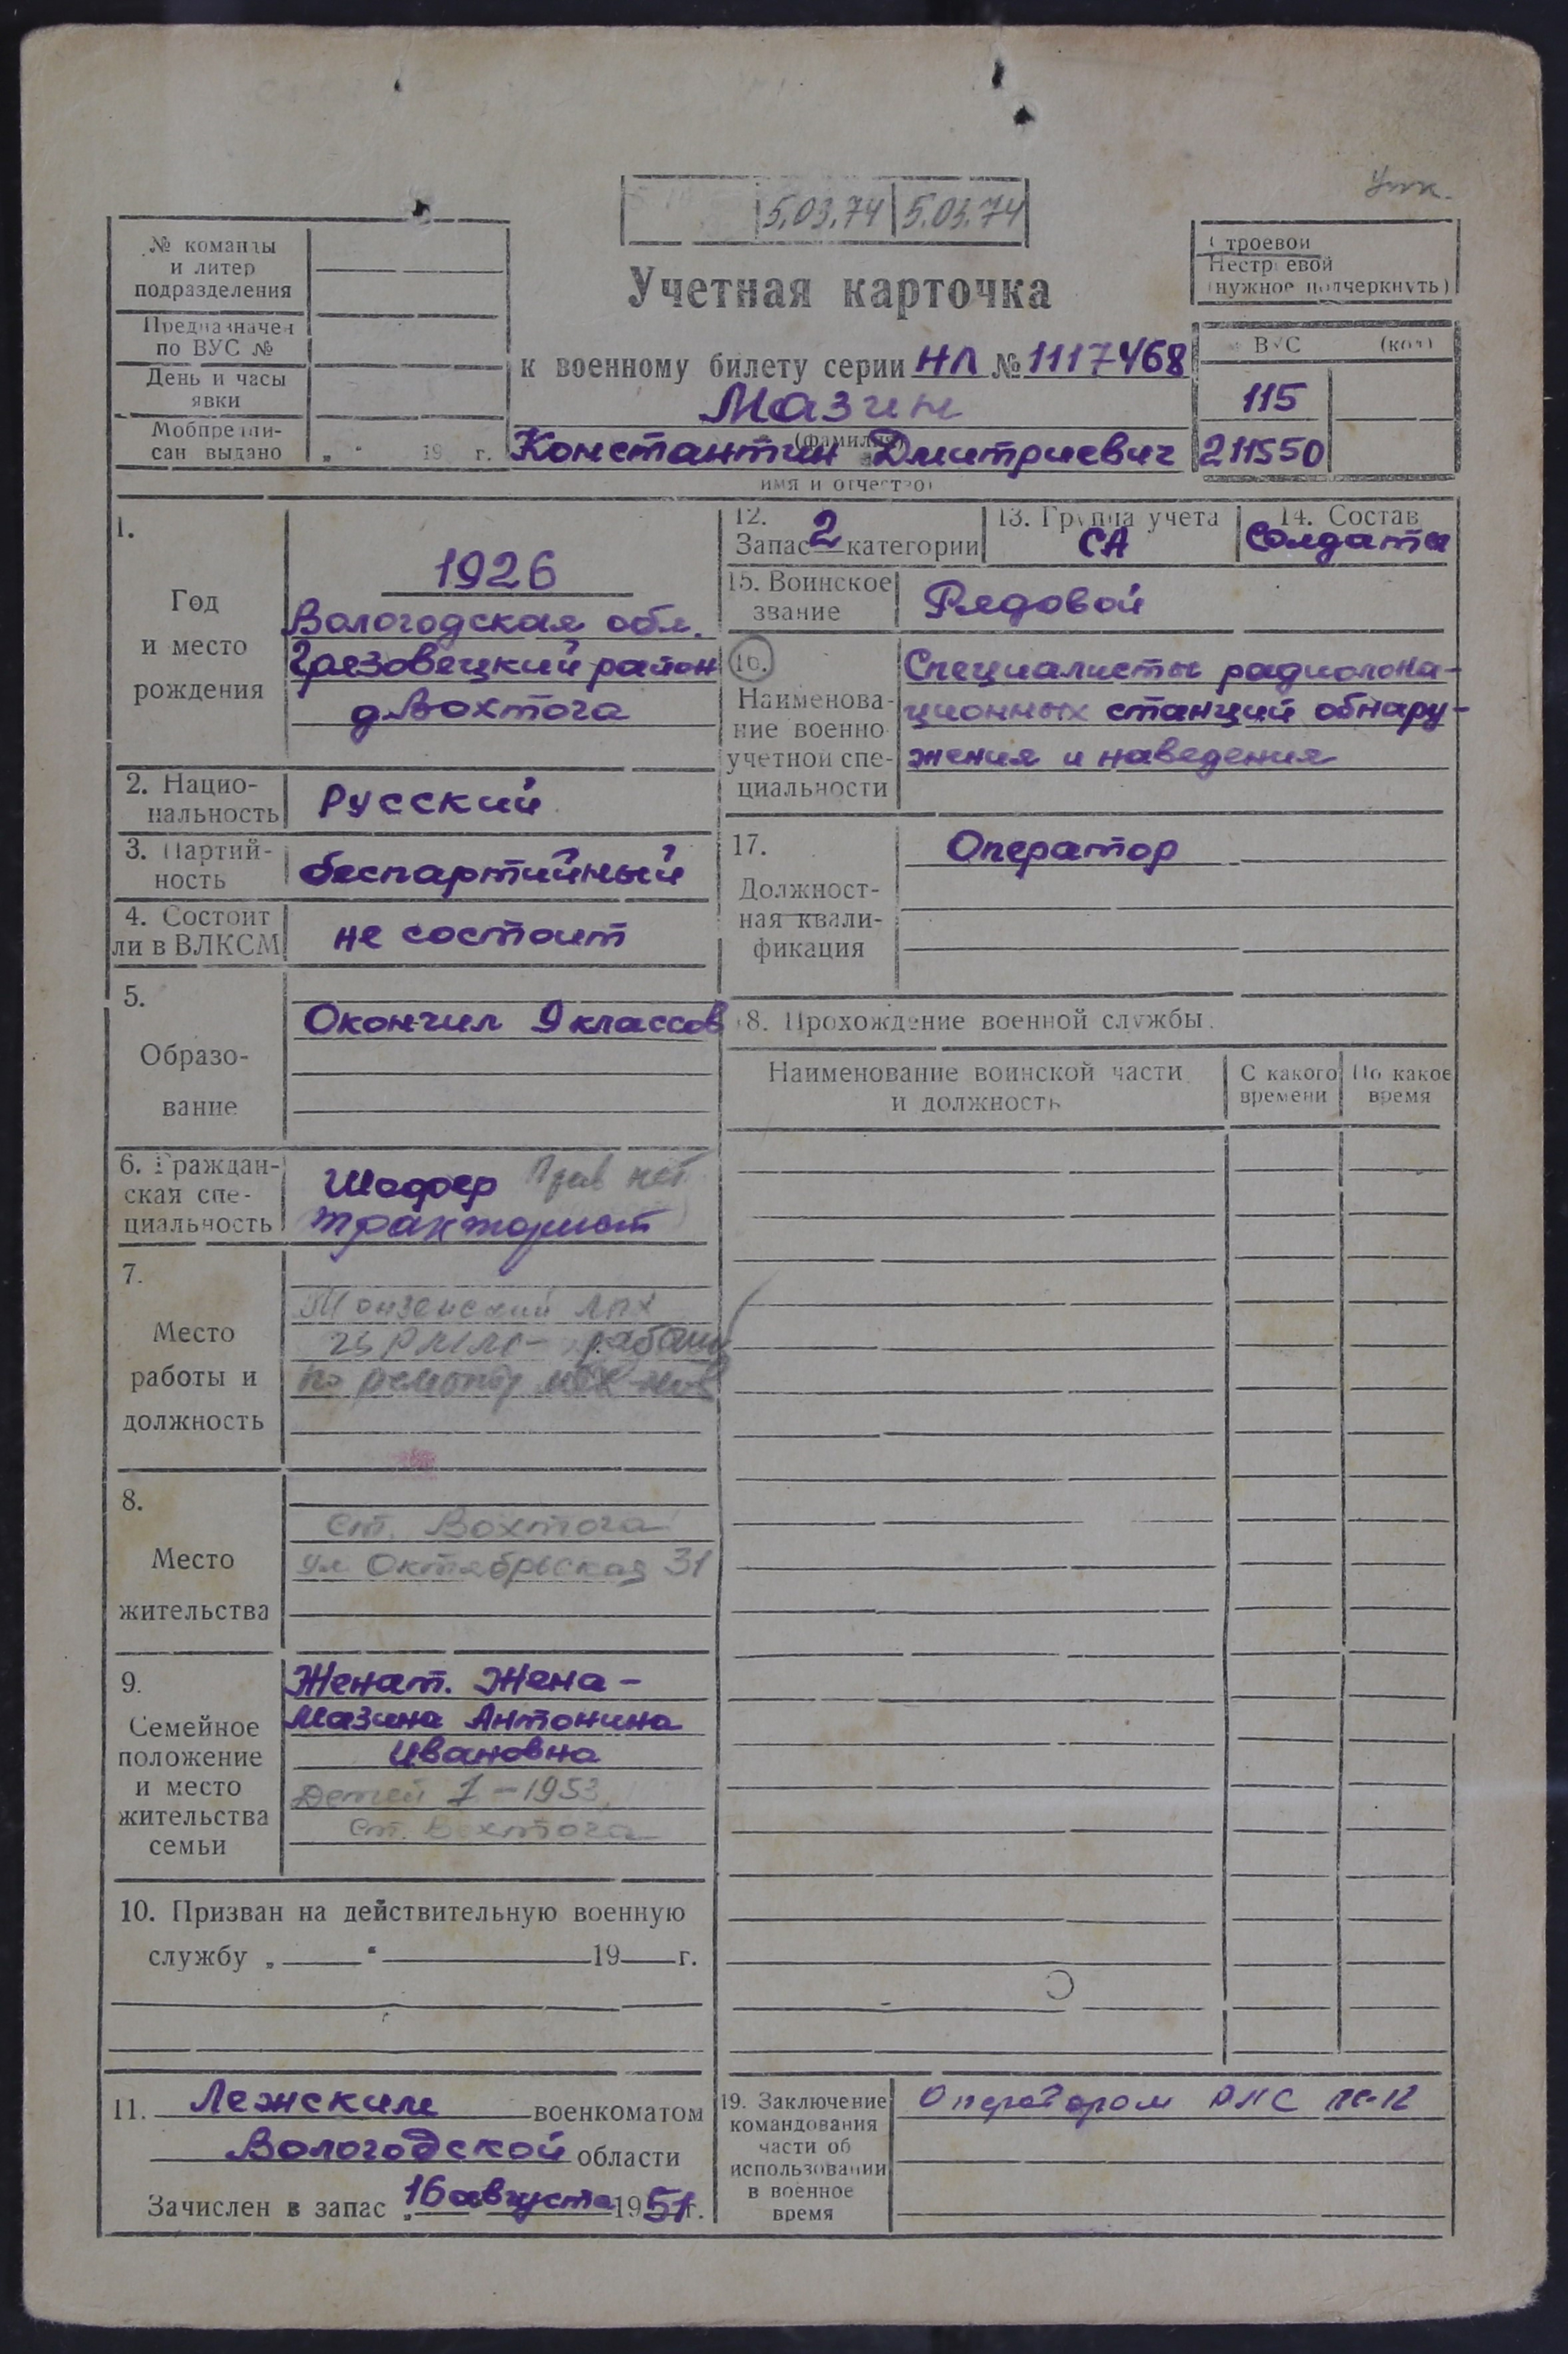 Учк.
5.03.74 5.03.74
№ команды
и литер
подразделения
Предназначен
по ВУС №
День и часы
явки
Мобпредпи-
сан выдано „ “ 19 г.
Строевой
Нестроевой
(нужное подчеркнуть)
Учетная карточка
к военному билету серии НЛ № 1117468
Мазин
(фамилия)
Константин Дмитриевич
имя и отчество)
ВУС (код)
115
211550
1.
Год
и место
рождения
1926
Вологодская обл.
Грязовецкий район
д Вохтога
2. Нацио-
нальность
Русский
3. Партий-
ность
беспартийный
4. Состоит
ли в ВЛКСМ
не состоит
5.
Образо-
вание
Окончил 9 классов
6. Граждан-
ская спе-
циальность
Шофер Прав нет
тракторист
7.
Место
работы и
должность
Монзенский ЛПХ
рабочий
по ремонту мех-мов
8.
Место
жительства
ст. Вохтога
ул Октябрьская 31
9.
Семейное
положение
и место
жительства
семьи
Женат. Жена -
Мазина Антонина
Ивановна
Детей 1 - 1953,
ст. Вохтога
10. Призван на действительную военную
службу „ “ 19 г.
11. Лежским военкоматом
Вологодской области
Зачислен в запас „ 16 августа 1951 г.
12.
Запас 2 категории
13. Группа учета
СА
14. Состав
Солдаты
15. Воинское
звание
Рядовой
16.
Наименова-
ние военно
учетной спе-
циальности
Специалисты радиолока-
ционных станций обнару-
жения и наведения
17.
Должност-
ная квали-
фикация
Оператор
18. Прохождение военной службы.
Наименование воинской части
и должность
С какого
времени
По какое
время
19. Заключение
командования
части об
использовании
в военное
время
Оператором РЛС